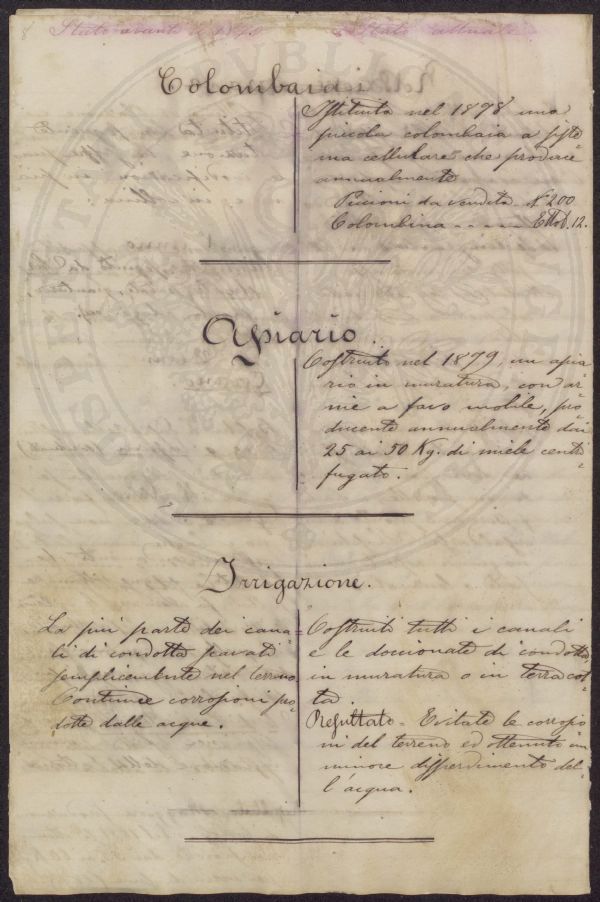 8 Stato avanti il 1870. Stato attuale.
Colombaia
Istituita nel 1878 una
piccola colombaia a siste=
ma cellulare che produce
annualmente
Piccioni da vendita N 200
Colombina - - - - Ettol. 12.
Apiario.
Costruito nel 1879, un apia=
rio in muratura, con ar=
nie a favo mobile, pro=
ducente annualmente dai
25 ai 50 Kg. di miele centri=
fugato.
Irrigazione.
La più parte dei cana=
li di condotta scavati
semplicemente nel terreno.
Continue corrosioni pro=
dotte dalle acque.
Costruiti tutti i canali
e le doccionate di condotta,
in muratura o in terra cot=
ta.
Resultato = Evitate le corrosio=
ni del terreno ed ottenuto un
minore disperdimento del=
l'acqua.